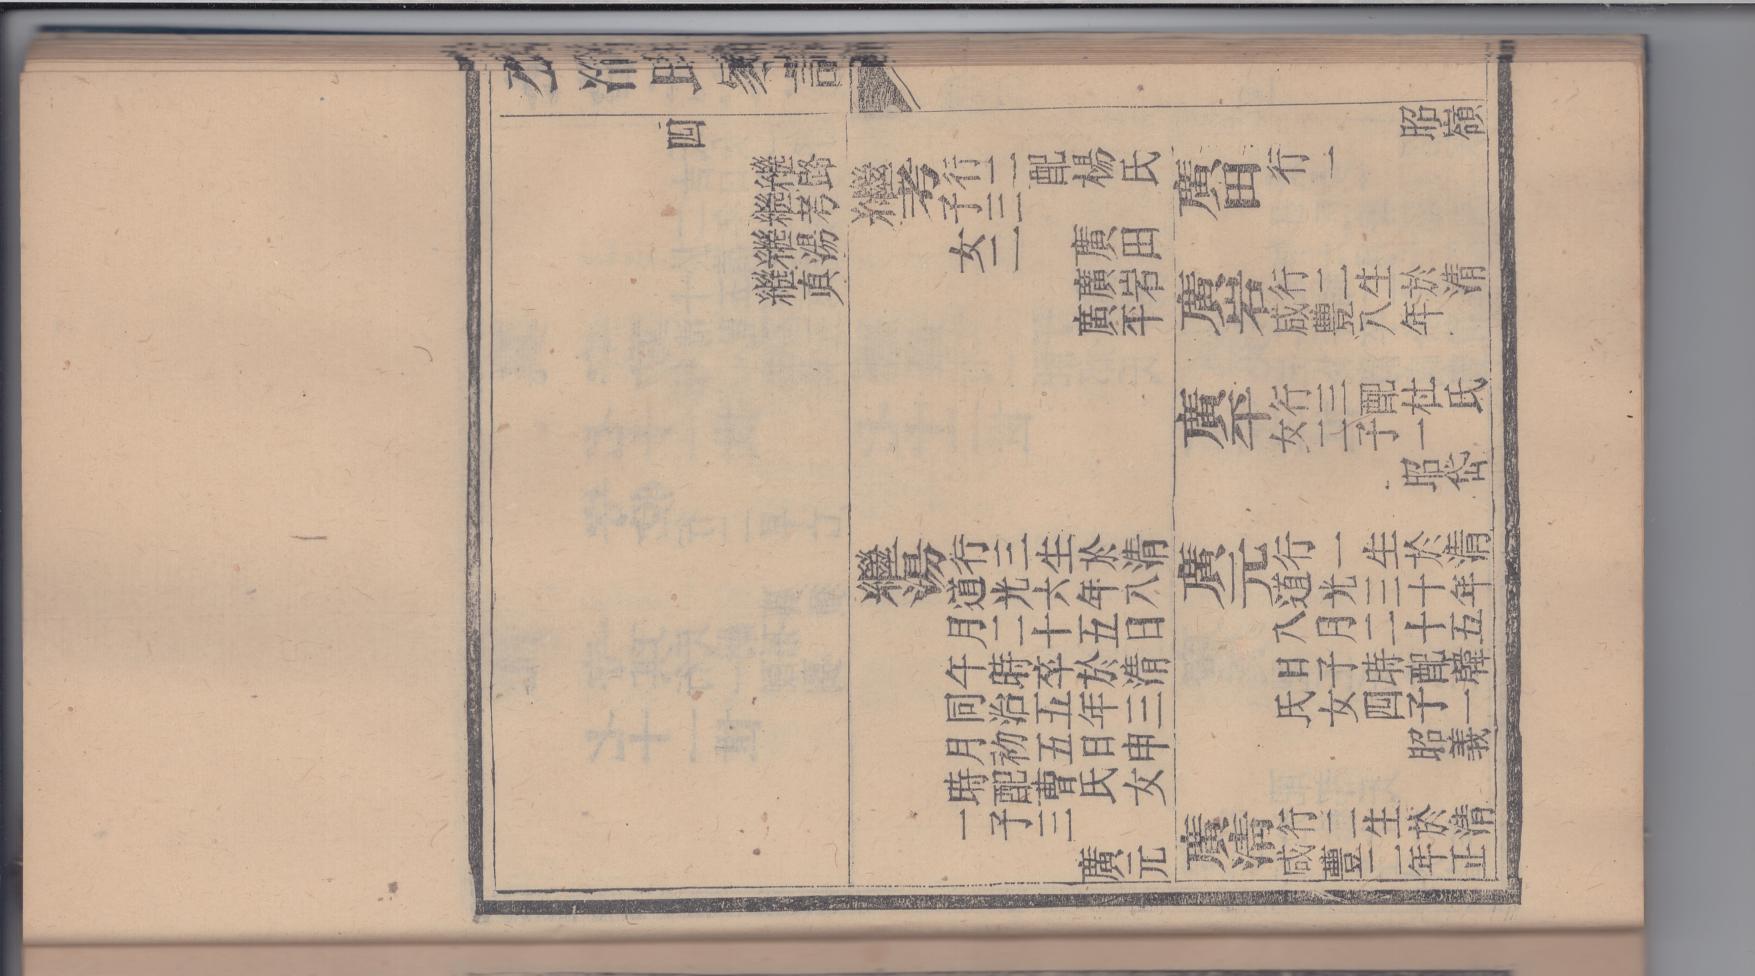 四
繼路
繼考
繼湯
繼貞
昭嶺
繼考
行二配楊氏
子三
女一
廣田
廣岩
廣平
廣田
行一
廣岩
行二生於清
咸豐八年
廣平
行三配杜氏
女二子一
昭岱
繼湯
行三生於清
道光六年八
月二十五日
午時卒於清
同治五年三
月初五日申
時配曹氏女
一子三
廣元
廣元
行一生於清
道光三十年
八月二十五
日子時配韓
氏女四子一
昭義
廣清
行二生於清
咸豐一年正